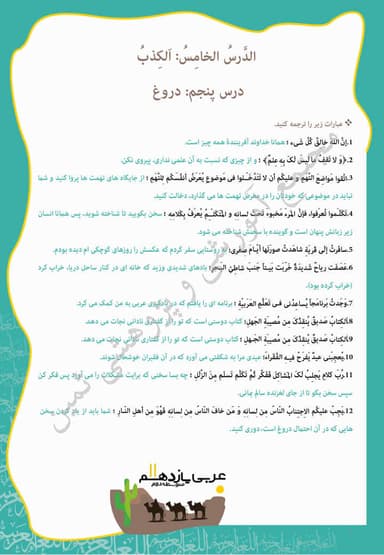 الدَّرسُ الخامِسُ: اَلکِذبُ
درس پنجم: دروغ
❖ عبارات زیر را ترجمه کنید.
1.إنَّ اللهَ خالِقُ کُلِّ شَیء: همانا خداوند آفرینندهٔ همه چیز است.
2.﴿وَ لا تَقفُ ما لَیسَ لَکَ بِهِ عِلمٌ﴾: و از چیزی که نسبت به آن علمی نداری، پیروی نکن.
3.اتَّقوا مَواضِعَ التُّهَمِ وَ عَلَیکُم أن لا تَتَدَخَّلوا فی مَوضوعٍ یُعَرِّضُ أنفُسَکُم لِلتُّهَمِ: از جایگاه های تهمت ها پروا کنید و شما
نباید در موضوعی که خودتان را در معرض تهمت ها می گذارد، دخالت کنید.
4.تَکَلَّموا تُعرَفوا، فَإنَّ المَرءَ مَخبوءٌ تَحتَ لِسانِهِ و المُتَکَلِّمُ یُعرَفُ بِکَلامِهِ: سخن بگویید تا شناخته شوید، پس همانا انسان
زیر زبانش پنهان است و گوینده با سخنش شناخته می شود.
5.سافَرتُ إلی قَریَةٍ شاهَدتُ صورَتَها أیّامَ صِغَری: به روستایی سفر کردم که عکسش را روزهای کوچکی ام دیده بودم.
6.عَصَفَت ریاحٌ شَدیدَةٌ خَرَّبَت بَیتاً جَنبَ شاطِئِ البَحرِ: بادهای شدیدی وزید که خانه ای در کنار ساحل دریا، خراب کرد
(خراب کرده بود).
7.وَجَدتُ بَرنامَجاً یُساعِدُنی فی تَعَلُّمِ العَرَبیَّةِ: برنامه ای را یافتم که در یادگیری عربی به من کمک می کرد.
8.اَلکِتابُ صَدیقٌ یُنقِذُکَ مِن مُصیبَةِ الجَهلِ: کتاب دوستی است که تو را از گرفتاری نادانی نجات می دهد.
9.اَلکِتابُ صَدیقٌ یُنقِذُکَ مِن مُصیبَةِ الجَهلِ: کتاب دوستی است که تو را از گرفتاری نادانی نجات می دهد.
10.یُعجِبُنی عیدٌ یَفرَحُ فیهِ الفُقَراءُ: عیدی مرا به شگفتی می آورد که در آن فقیران خوشحال شوند.
11.رُبَّ کَلامٍ یَجلِبُ لَکَ المَشاکِلَ فَفَکِّر ثُمَّ تَکَلَّم تَسلَم مِنَ الزَّلَلِ: چه بسا سخنی که برایت مشکلات را می آورد پس فکر کن
سپس سخن بگو تا از جای لغزنده سالم بمانی.
12.یَجِبُ عَلَیکُم الاِجتِنابُ النّاسُ مِن لِسانِهِ وَ مَن خافَ النّاسُ مِن لِسانِهِ فَهُوَ مِن أهلِ النّارِ: شما باید از یاد کردن سخن
هایی که در آن احتمال دروغ است،دوری کنید.
عربی یازدهم